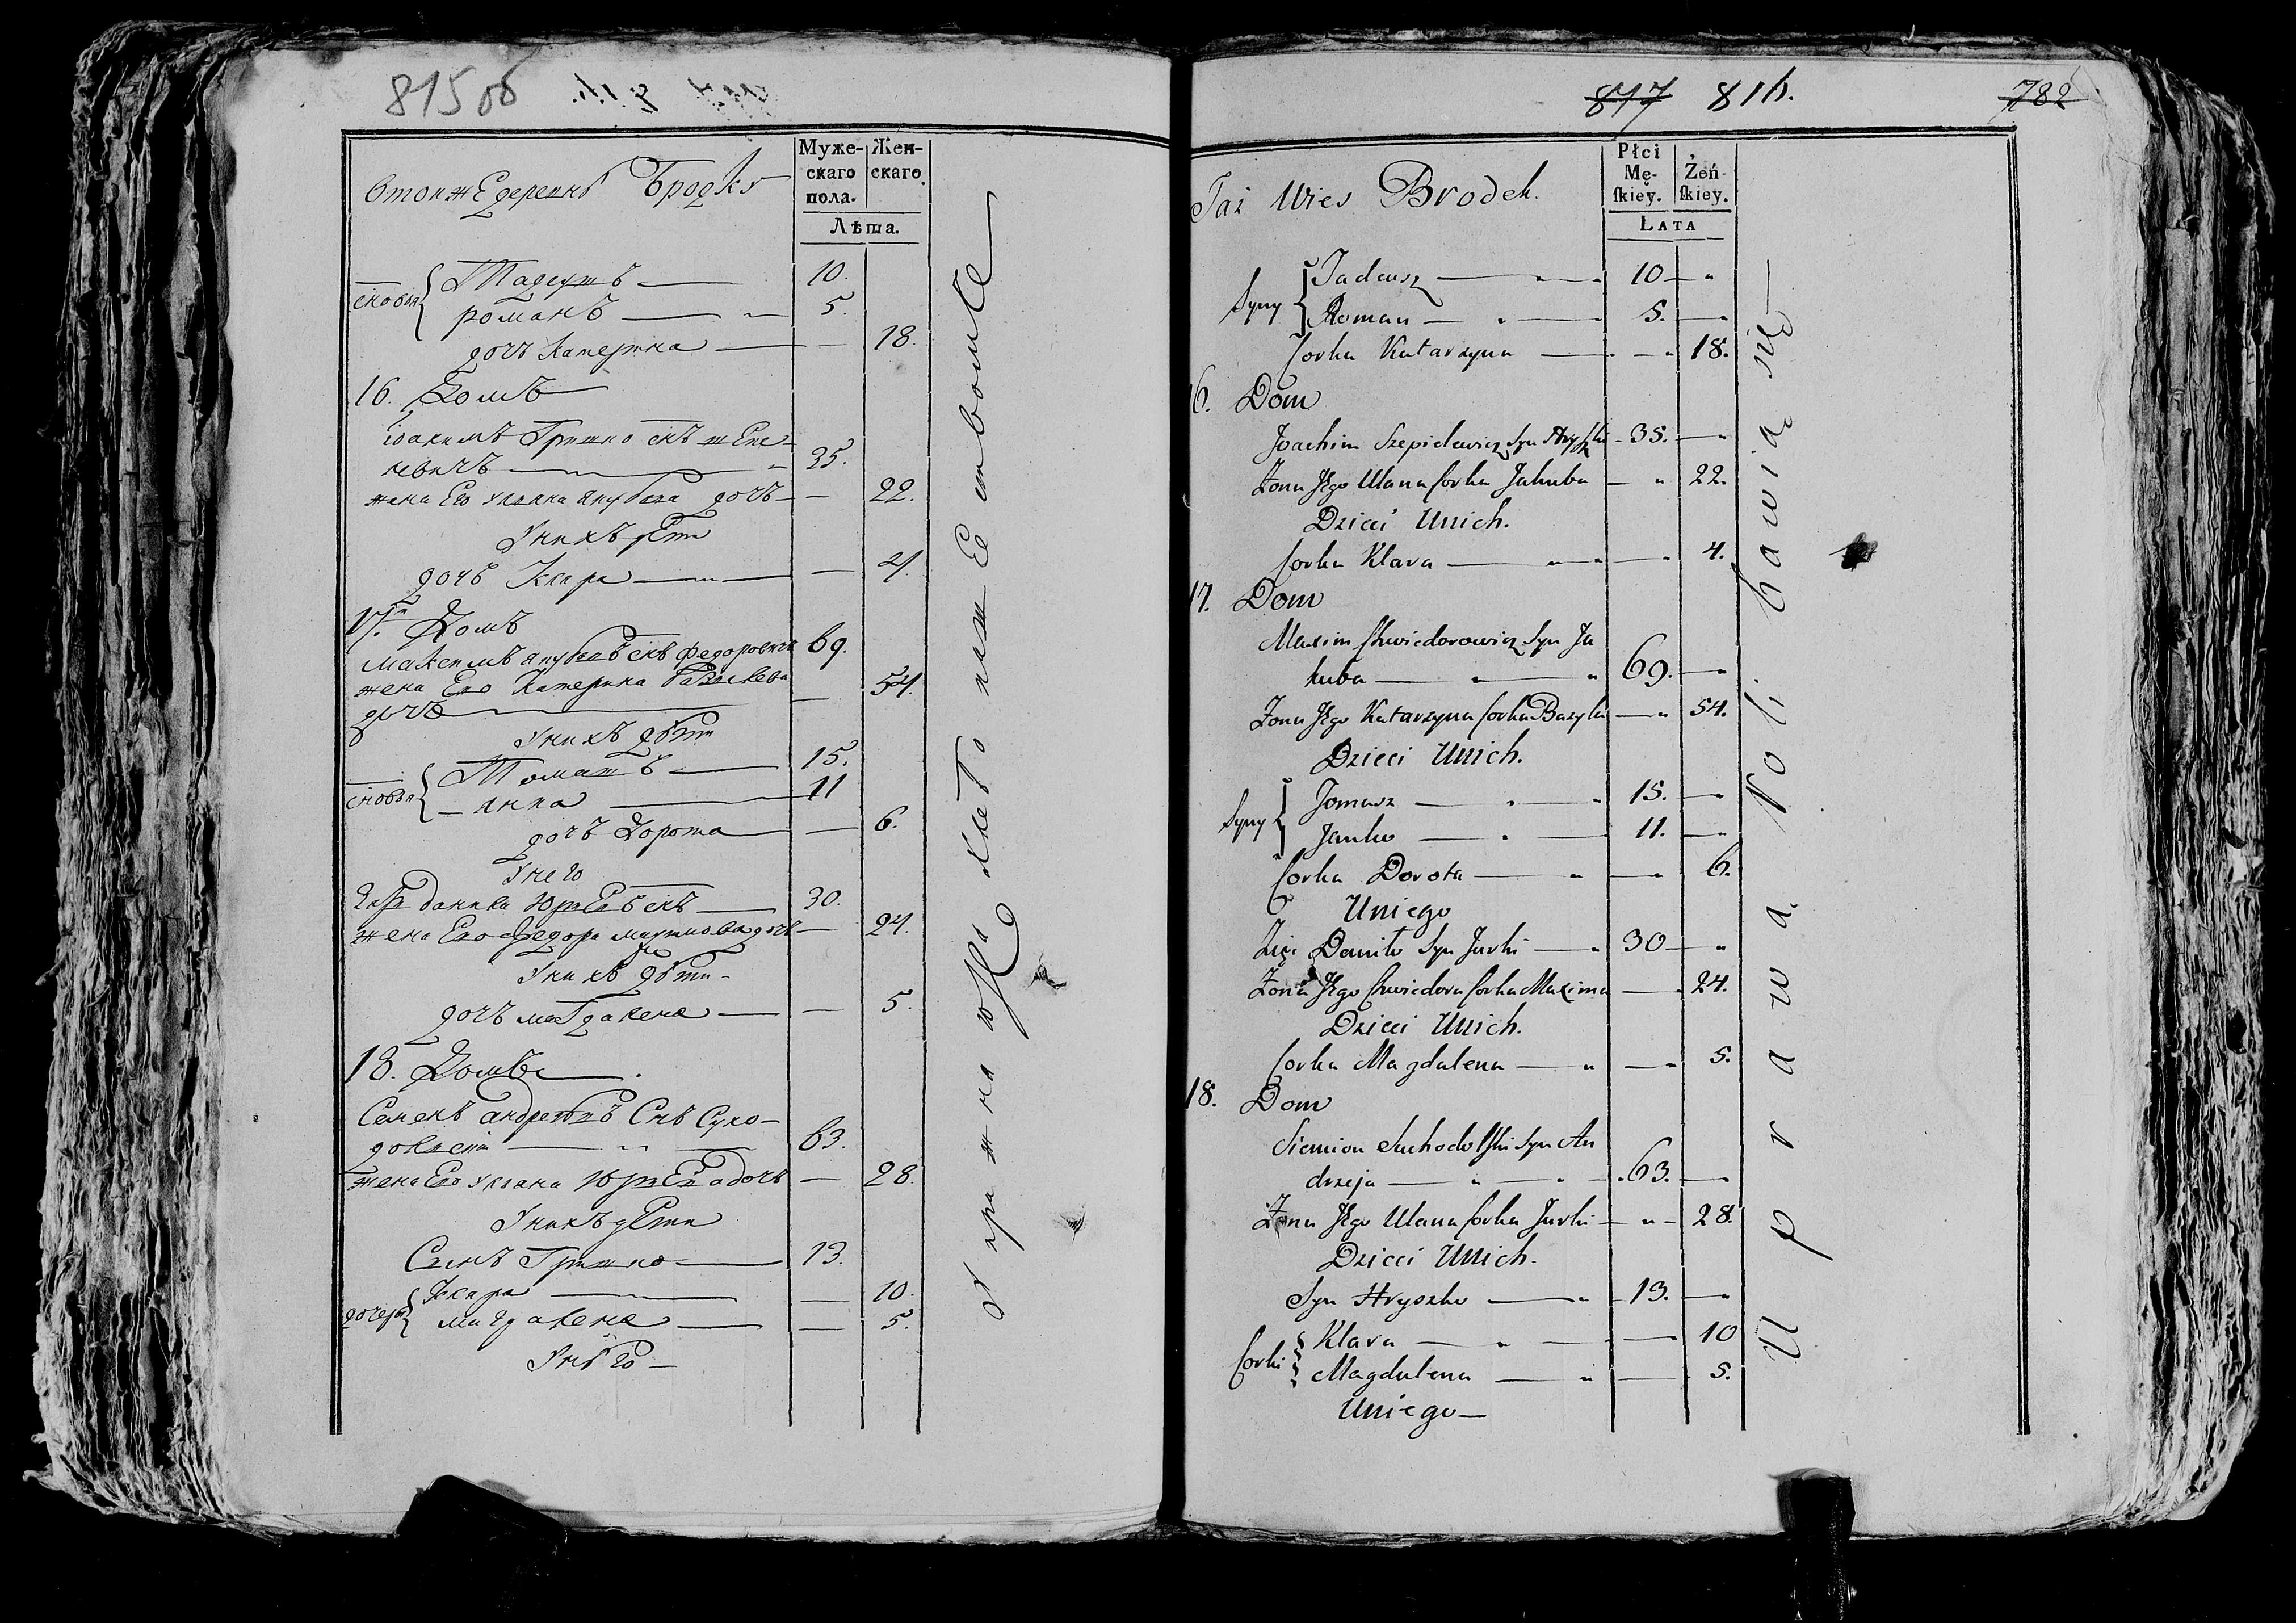 815 об
втойже деревнѣ Бродку
Муже-
скаго
пола.
Жен-
скаго
Лѣта.
сновья
Тадеушъ 10.
романъ 5.
дочь Катерина 18.
16. Домъ
іоакимъ Гришко снъ шепе-
левичъ 35.
жена Его ульяна якубова дочь 22.
Унихъ дети
дочь Клара 4.
17. Домъ
максимъ якубовъ снъ федоровичъ 69.
жена Его Катерина базылева 54.
дочь
Унихъ дѣти
сновья
Томашъ 15.
янка 11
дочь Дорота 6.
Унего
зять данила юрковъ снъ 30.
жена Его федора дочь 24.
Унихъ дѣти
дочь магдалена 5.
18. Домъ
Семенъ андреевъ Снъ Сухо-
дольскій 63.
жена Его ульяна дочь 28.
Унихъ дети
Сынъ Гришко 13.
дочери
Клара 10.
магдалена 5.
Унѣго
817 816.
782
Taż Wieś Brodek.
Płci
Mę-
skiey.
Żeń-
skiey.
LATA
Syny
Tadeusz 10
Roman 5.
Corka Katarzyna 18.
16. Dom
Joachim Szepielewicz Syn Hryszki 35.
Zona Jego Ulana Corka Jakuba 22.
Dzieci Unich.
Corka Klara 4.
17. Dom
Maxim Chwiedorowicz Syn Ja
kuba 69.
Zona Jego Katarzyna Corka Bazyla 54.
Dzieci Unich.
Syny
Tomasz 15.
Janko 11.
Corka Dorota 6.
Uniego
Zięć Daniło Syn Jurki 30
Zona Jego Chwiedora Corka Maxima 24.
Dzieci Unich.
Corka Magdalena 5.
18. Dom
Siemion Suchodolski Syn An
drzeja 63.
Zona Jego Ulana Corka Jurki 28.
Dzieci Unich.
Syn Hryszko 13.
Corki
Klara 10
Magdalena 5.
Uniego
Uprawą Roli bawią się